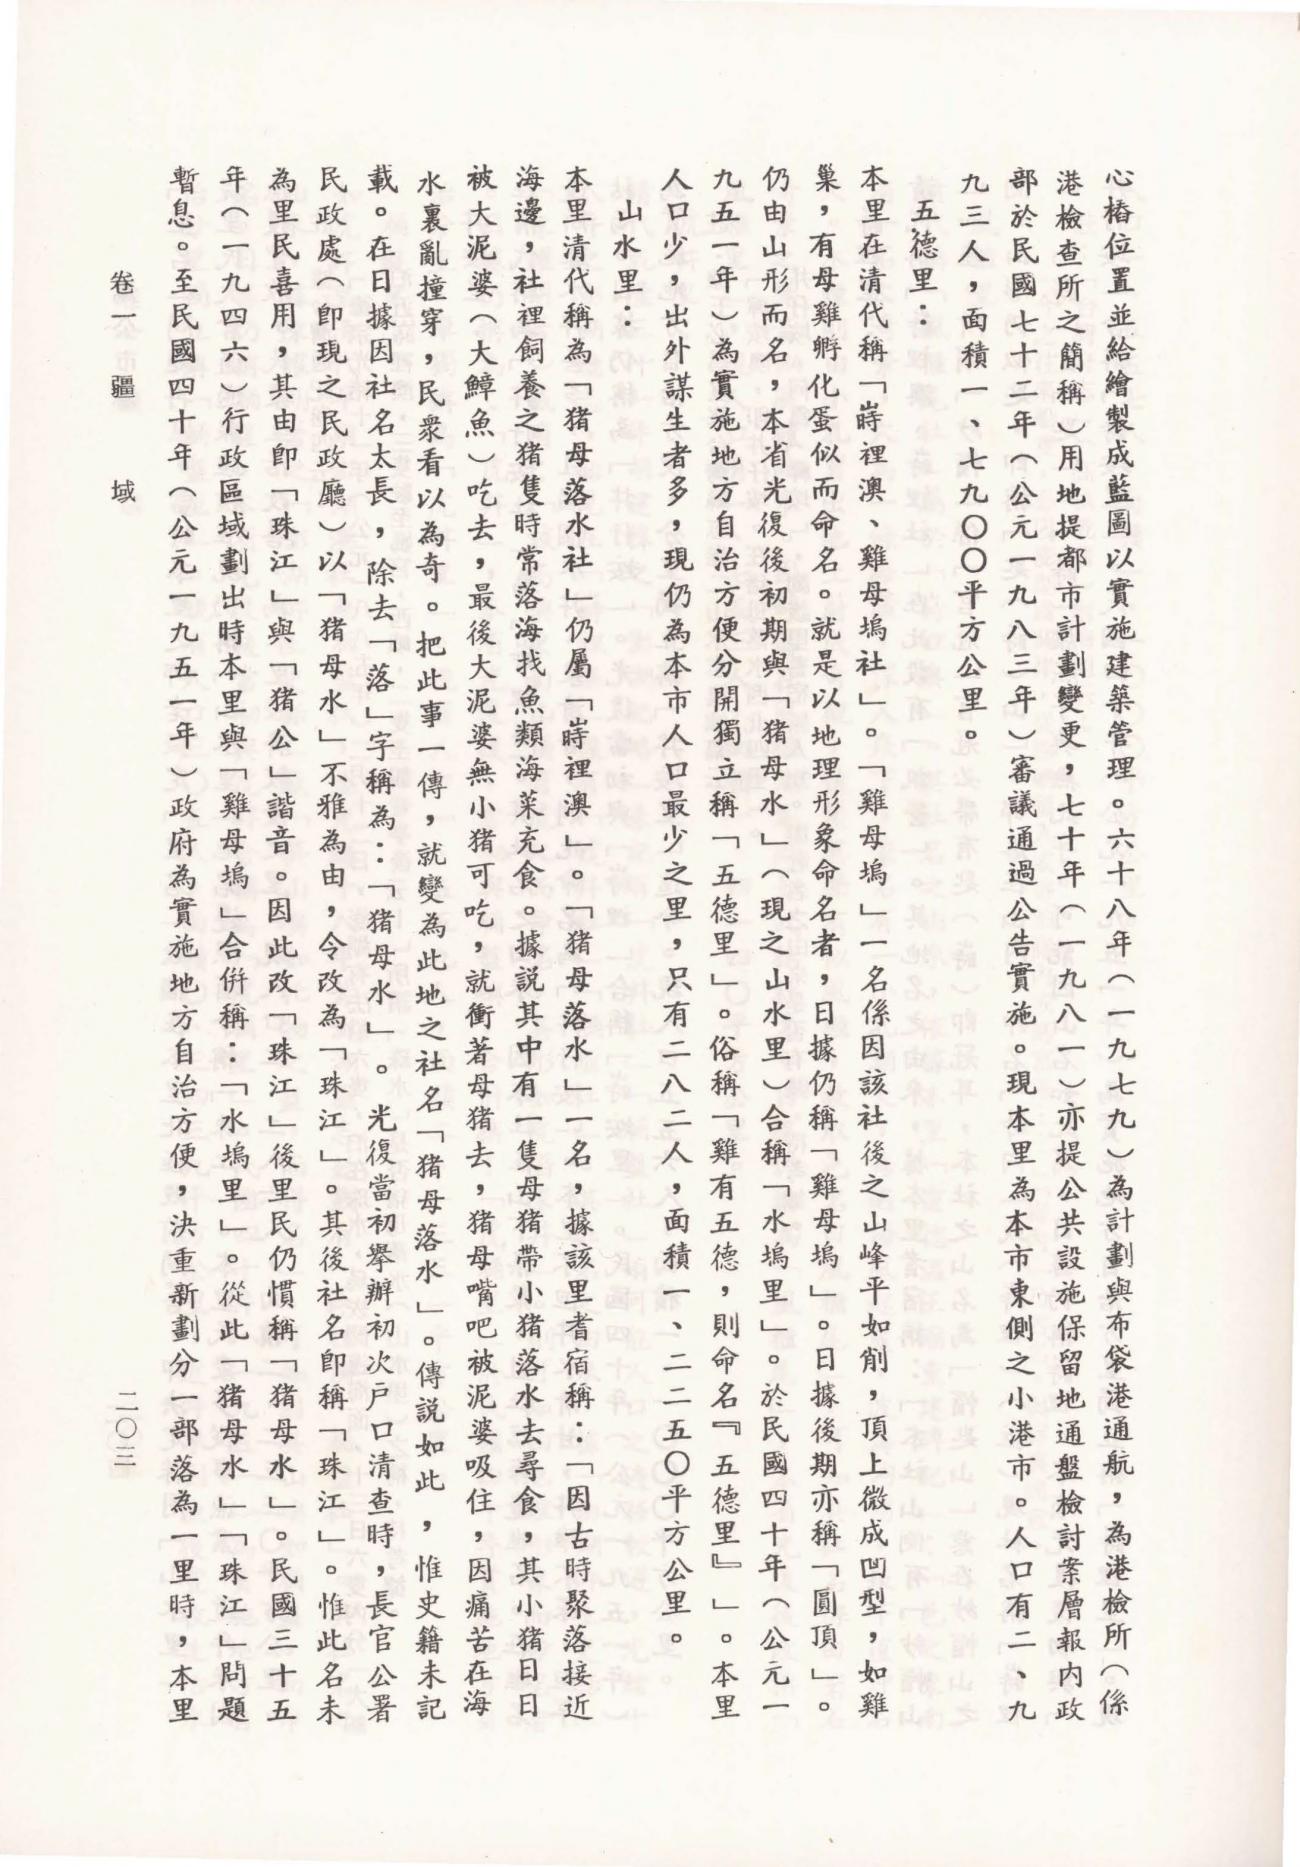 心樁位置並給繪製成藍圖以實施建築管理。六十八年（一九七九）為計劃與布袋港通航，為港檢所（係
港檢查所之簡稱）用地提都市計劃變更，七十年（一九八一）亦提公共設施保留地通盤檢討案層報內政
部於民國七十二年（公元一九八三年）審議通過公告實施。現本里為本市東側之小港市。人口有二、九
九三人，面積一、七九〇〇平方公里。
五德里：
本里在清代稱「嵵裡澳、雞母塢社」。「雞母塢」一名係因該社後之山峰平如削，頂上微成凹型，如雞
巢，有母雞孵化蛋似而命名。就是以地理形象命名者，日據仍稱「雞母塢」。日據後期亦稱「圓頂」。
仍由山形而名，本省光復後初期與「猪母水」（現之山水里）合稱「水塢里」。於民國四十年（公元一
九五一年）為實施地方自治方便分開獨立稱「五德里」。俗稱「雞有五德，則命名『五德里』」。本里
人口少，出外謀生者多，現仍為本市人口最少之里，只有二八二人，面積一、二二五〇平方公里。
山水里：
本里清代稱為「猪母落水社」仍屬「嵵裡澳」。「猪母落水」一名，據該里耆宿稱：「因古時聚落接近
海邊，社裡飼養之猪隻時常落海找魚類海菜充食。據說其中有一隻母猪帶小猪落水去尋食，其小猪日日
被大泥婆（大鱆魚）吃去，最後大泥婆無小猪可吃，就衝著母猪去，猪母嘴吧被泥婆吸住，因痛苦在海
水裏亂撞穿，民衆看以為奇。把此事一傳，就變為此地之社名「猪母落水」。傳說如此，惟史籍未記
載。在日據因社名太長，除去「落」字稱為：「猪母水」。光復當初舉辦初次戶口清查時，長官公署
民政處（卽現之民政廳）以「猪母水」不雅為由，令改為「珠江」。其後社名卽稱「珠江」。惟此名未
為里民喜用，其由卽「珠江」與「猪公」諧音。因此改「珠江」後里民仍慣稱「猪母水」。民國三十五
年（一九四六）行政區域劃出時本里與「雞母塢」合倂稱：「水塢里」。從此「猪母水」「珠江」問題
暫息。至民國四十年（公元一九五一年）政府為實施地方自治方便，決重新劃分一部落為一里時，本里
卷一　疆　域
二〇三